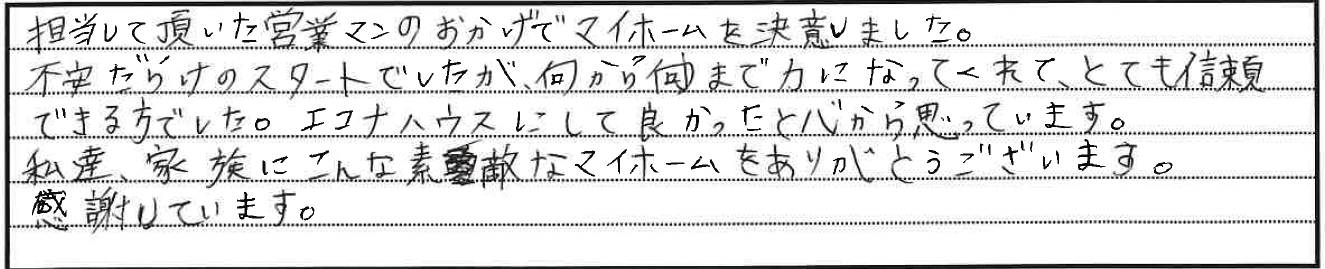 担当して頂いた営業マンのおかげでマイホームを決意しました。
不安だらけのスタートでしたが、何から何まで力になってくれて、とても信頼
できる方でした。エコナハウスにして良かったと心から思っています。
私達、家族にこんな素敵なマイホームをありがとうございます。
感謝しています。